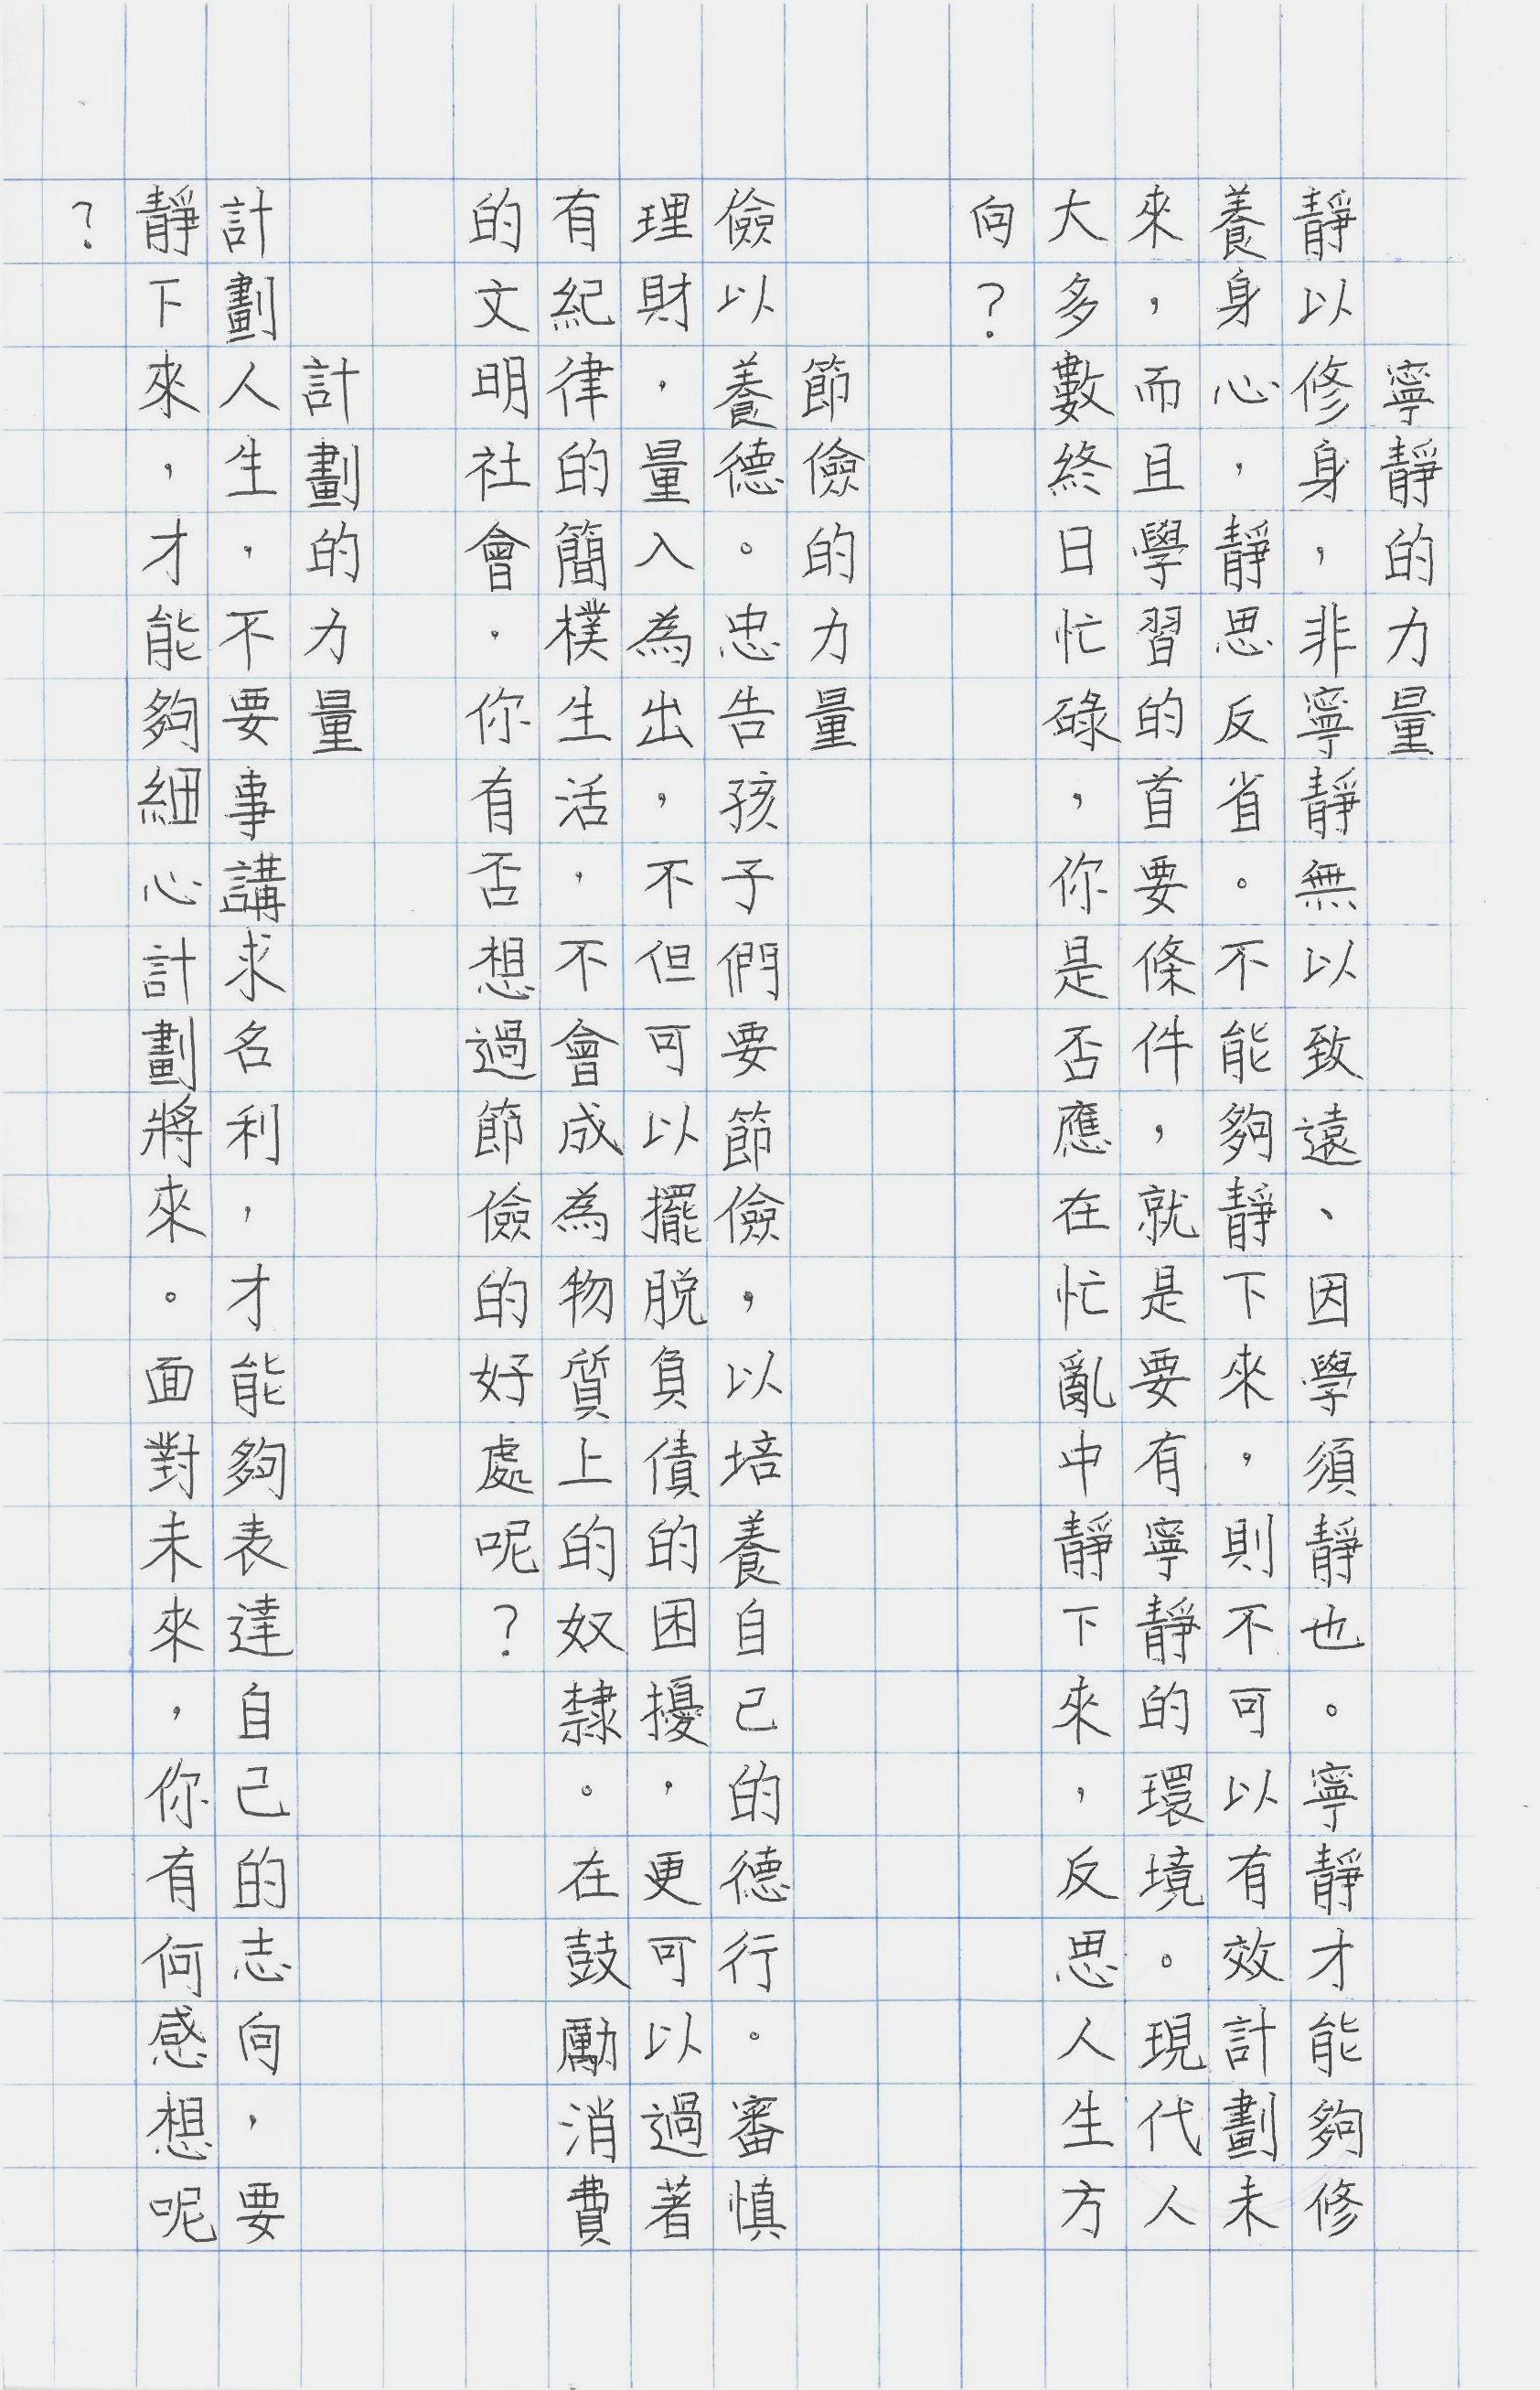 寧靜的力量
靜以修身，非寧靜無以致遠、因學須靜也。寧靜才能夠修
養身心，靜思反省。不能夠靜下來，則不可以有效計劃未
來，而且學習的首要條件，就是要有寧靜的環境。現代人
大多數終日忙碌，你是否應在忙亂中靜下來，反思人生方
向？
節儉的力量
儉以養德。忠告孩子們要節儉，以培養自己的德行。審慎
理財，量入為出，不但可以擺脱負債的困擾，更可以過著
有紀律的簡樸生活，不會成為物質上的奴隸。在鼓勵消費
的文明社會，你有否想過節儉的好處呢？
計劃的力量
計劃人生，不要事講求名利，才能夠表達自己的志向，要
靜下來，才能夠細心計劃將來。面對未來，你有何感想呢
？